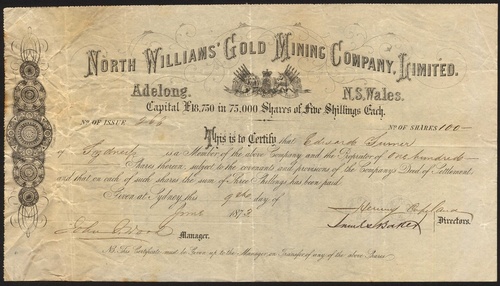 NORTH WILLIAMS' GOLD MINING COMPANY, LIMITED.
Adelong. N.S. Wales.
Capital £18,750 in 75,000 Shares of Five Shillings Each.
No. OF ISSUE No. OF SHARES 100
This is to Certify that Edward
of Sydney is a Member of the above Company and the Proprietor of One hundred
Shares therein, subject to the covenants and provisions of the Company's Deed of Settlement.
and that on each of such shares the sum of Three Shillings has been paid.
Given at Sydney this 9th day of
June 1872
Henry
John Wood Manager. Samuel Baker Directors.
N.B. This Certificate must be Given up to the Manager, on Transfer of any of the above Shares